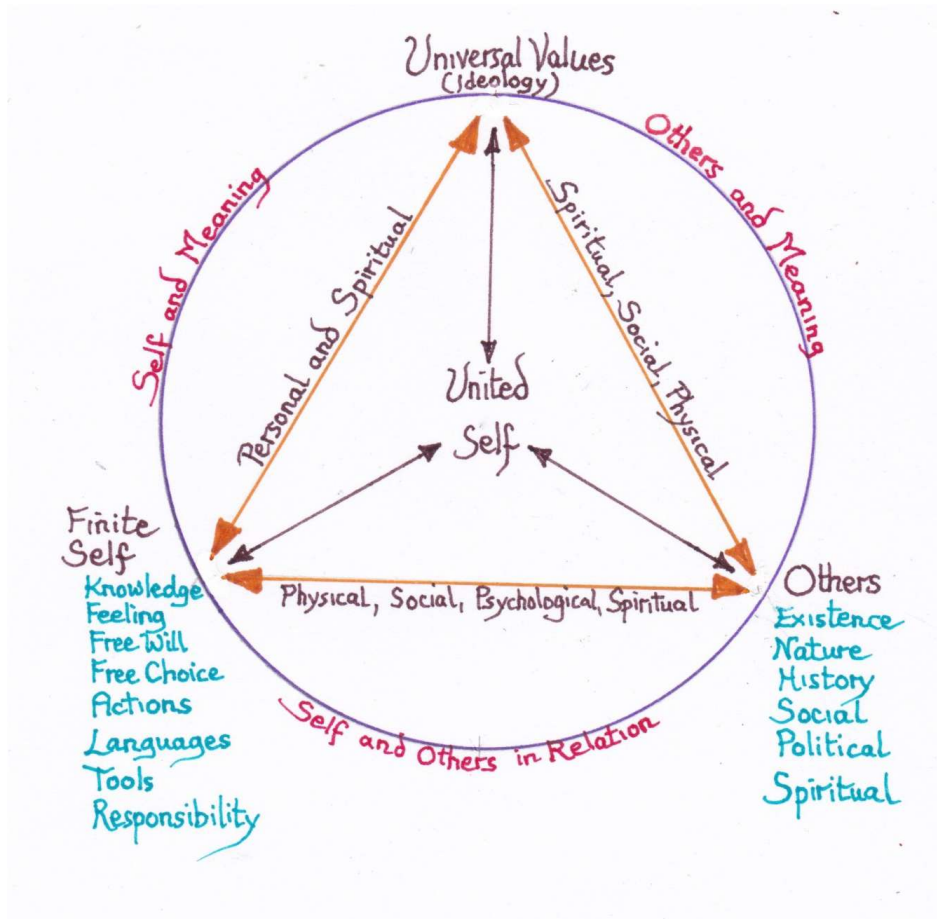 Universal Values
(Ideology)
Self and Meaning
Others and Meaning
Personal and Spiritual
Spiritual, Social, Physical
United
Self
Finite
Self
Knowledge
Feeling
Free Will
Free Choice
Actions
Languages
Tools
Responsibility
Physical, Social, Psychological, Spiritual
Others
Existence
Nature
History
Social
Political
Spiritual
Self and Others in Relation